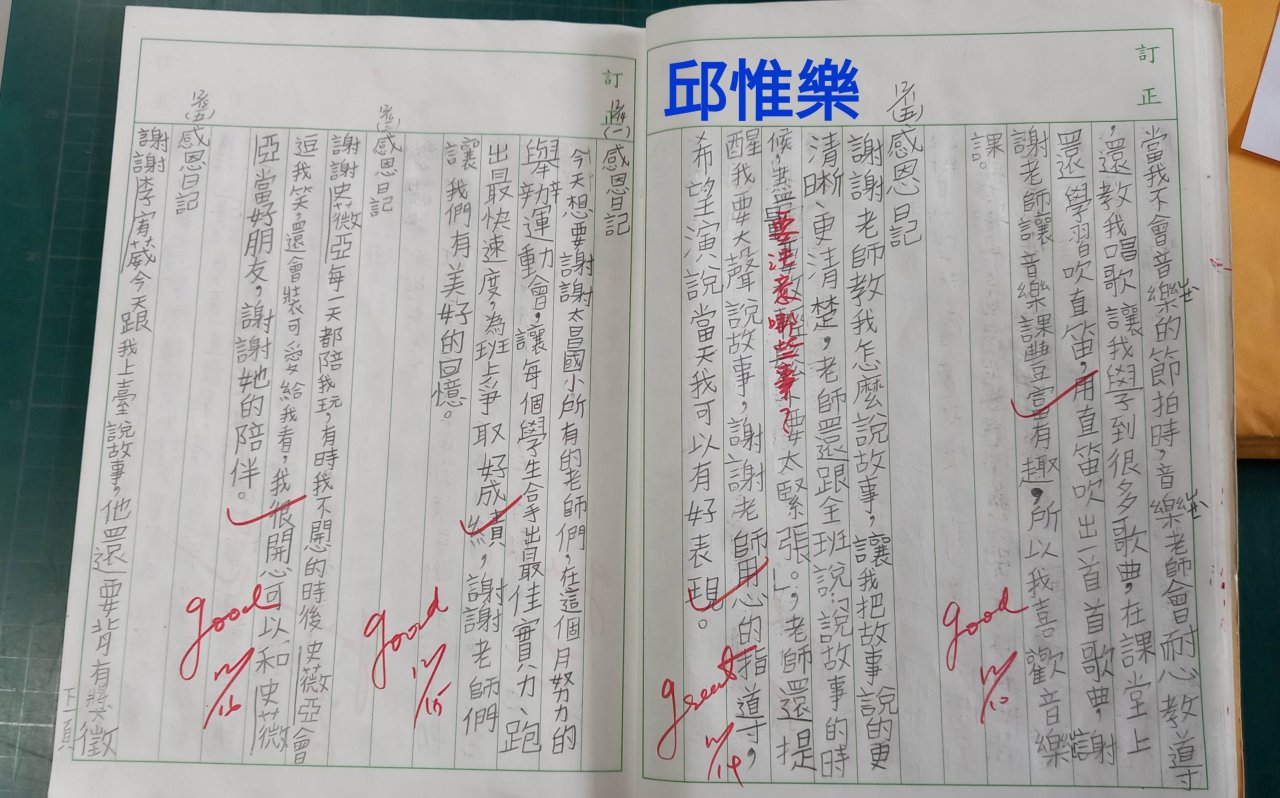 訂正
邱惟樂
當我不會音樂的節拍時,音樂老師會耐心教導
,還教我唱歌讓我學到很多歌曲,在課堂上
還學習吹直笛,用直笛吹出一首首歌曲,謝
謝老師讓音樂課豐富有趣,所以我喜歡音樂
課。
good
12/10
12/11(五)
感恩日記
謝謝老師教我怎麼說故事,讓我把故事說的更
清晰、更清楚,老師還跟全班說:「說故事的時
候,盡量要放輕鬆不要太緊張。」,老師還提
要注意哪些事?
醒我要大聲說故事,謝謝老師用心的指導,
希望演說當天我可以有好表現。
great
12/14
訂正
12/14(一)
感恩日記
今天想要謝謝太昌國小所有的老師們,在這個月努力的
舉辦運動會,讓每個學生合手出最佳實力、跑
出最快速度,為班上爭取好成績,謝謝老師們
讓我們有美好的回憶。
good
12/15
感恩日記
謝謝史薇亞每一天都陪我玩,有時我不開心的時後史薇亞會
逗我笑,還會裝可愛給我看,我很開心可以和史薇
亞當好朋友,謝謝她的陪伴。
good
12/16
(五)
感恩日記
謝謝李宥葳今天跟我上臺說故事,他還要背有獎徵
下一頁